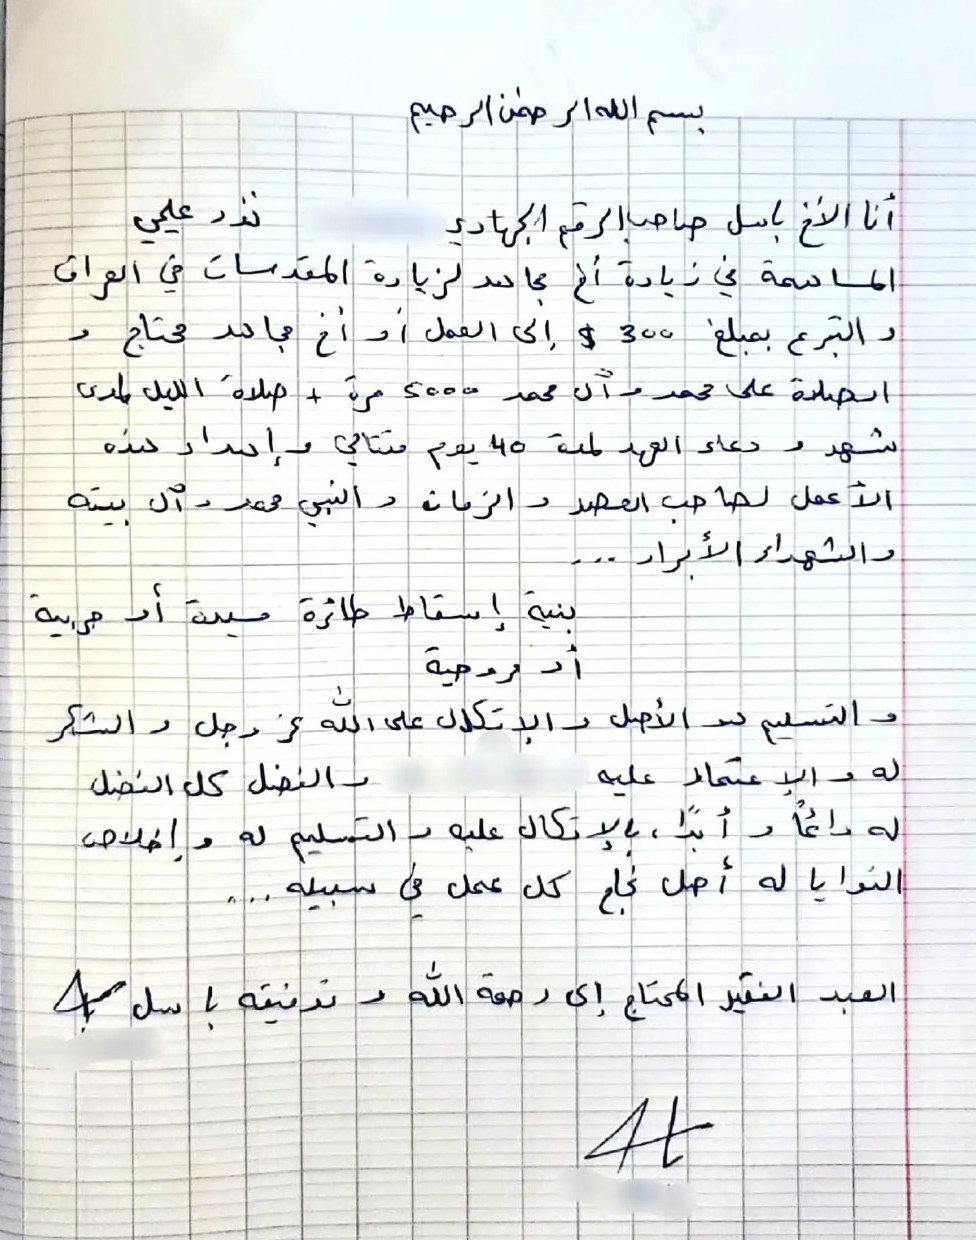 بسم الله الرحمن الرحيم
أنا الأخ باسل صاحب الرقم الجهادي نذر عليي
المساهمة في زيارة أخ مجاهد لزيارة المقدسات في العراق
و التبرع بمبلغ 300 $ إلى العمل أو أخ مجاهد محتاج و
الصلاة على محمد و آل محمد 5000 مرة + صلاة الليل لمدى
شهر و دعاء العهد لمدة 40 يوم متتالي و إهداء هذه
الأعمل لصاحب العصر و الزمان و النبي محمد و آل بيته
والشهداء الأبرار ...
بنية إسقاط طائرة مسيرة أو حربية
أو مروحية
و التسليم هو الأصل و الإتكال على الله عز وجل و الشكر
له و الإعتماد عليه و الفضل كل الفضل
له دائماً و أبداً، بالإتكال عليه و التسليم له و إخلاص
النوايا له أصل نجاح كل عمل في سبيله ...
العبد الفقير المحتاج إلى رحمة الله و توفيقه باسل